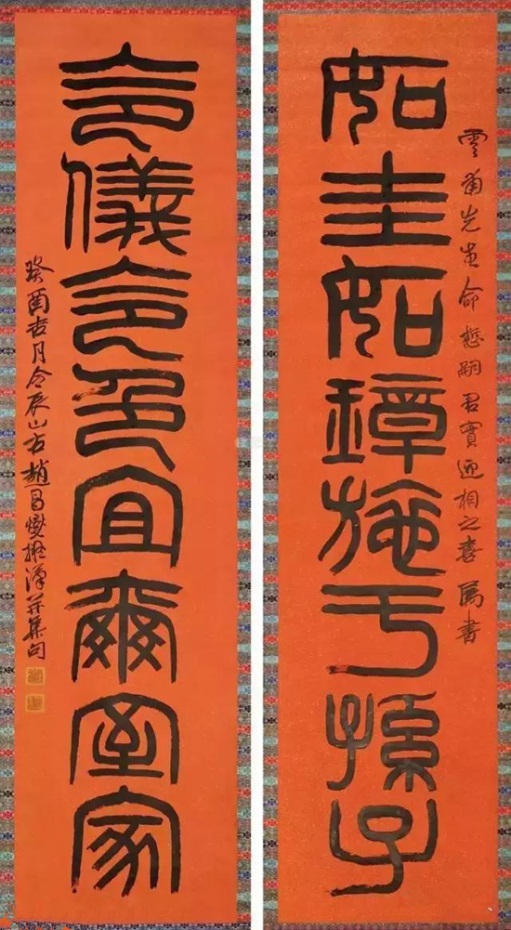 雲甫先生命悊嗣君實迎相之喜屬書
如圭如璋施于孫子
令儀令色宜爾室家
癸酉吉月令辰山右趙昌燮并集句